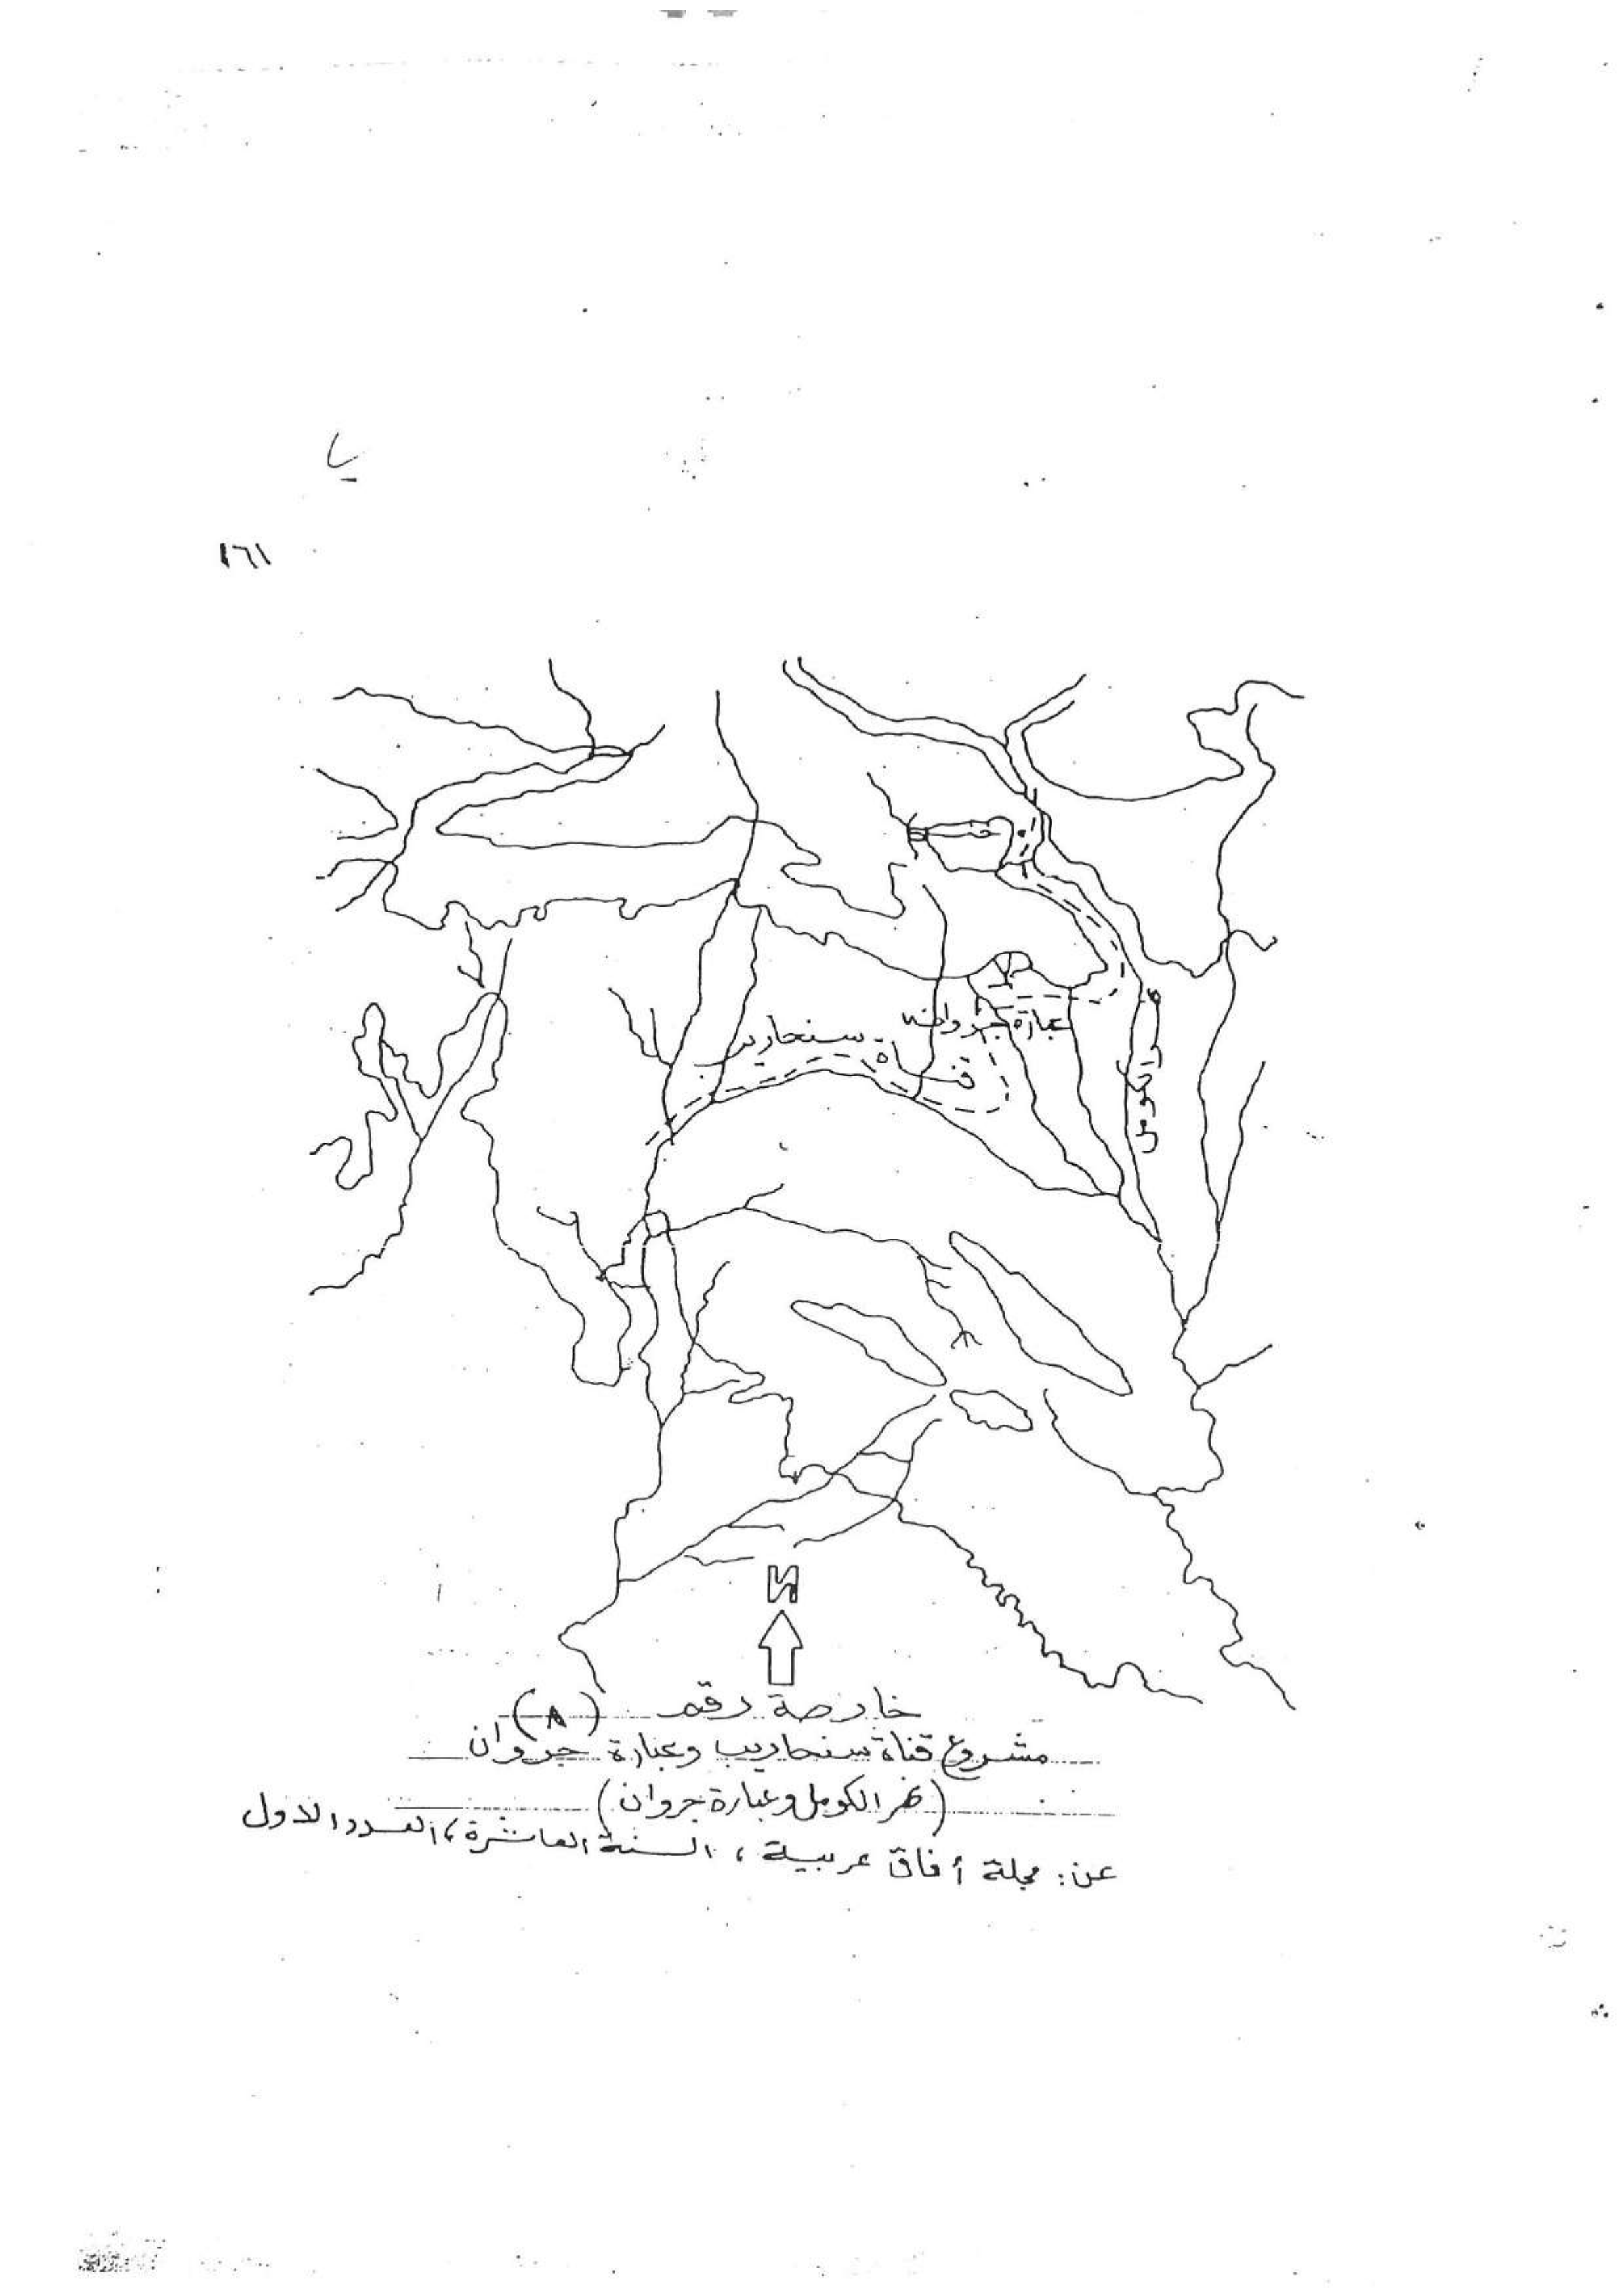 ١٦١
عبارة جروانه
قناة سنحاريب
N
خارصة رقم (٨)
مشروع قناة سنحاريب وعبارة جروان
(نهر الكومل وعبارة جروان)
عن: مجلة أفاق عربية، السنة العاشرة، العدد الاول